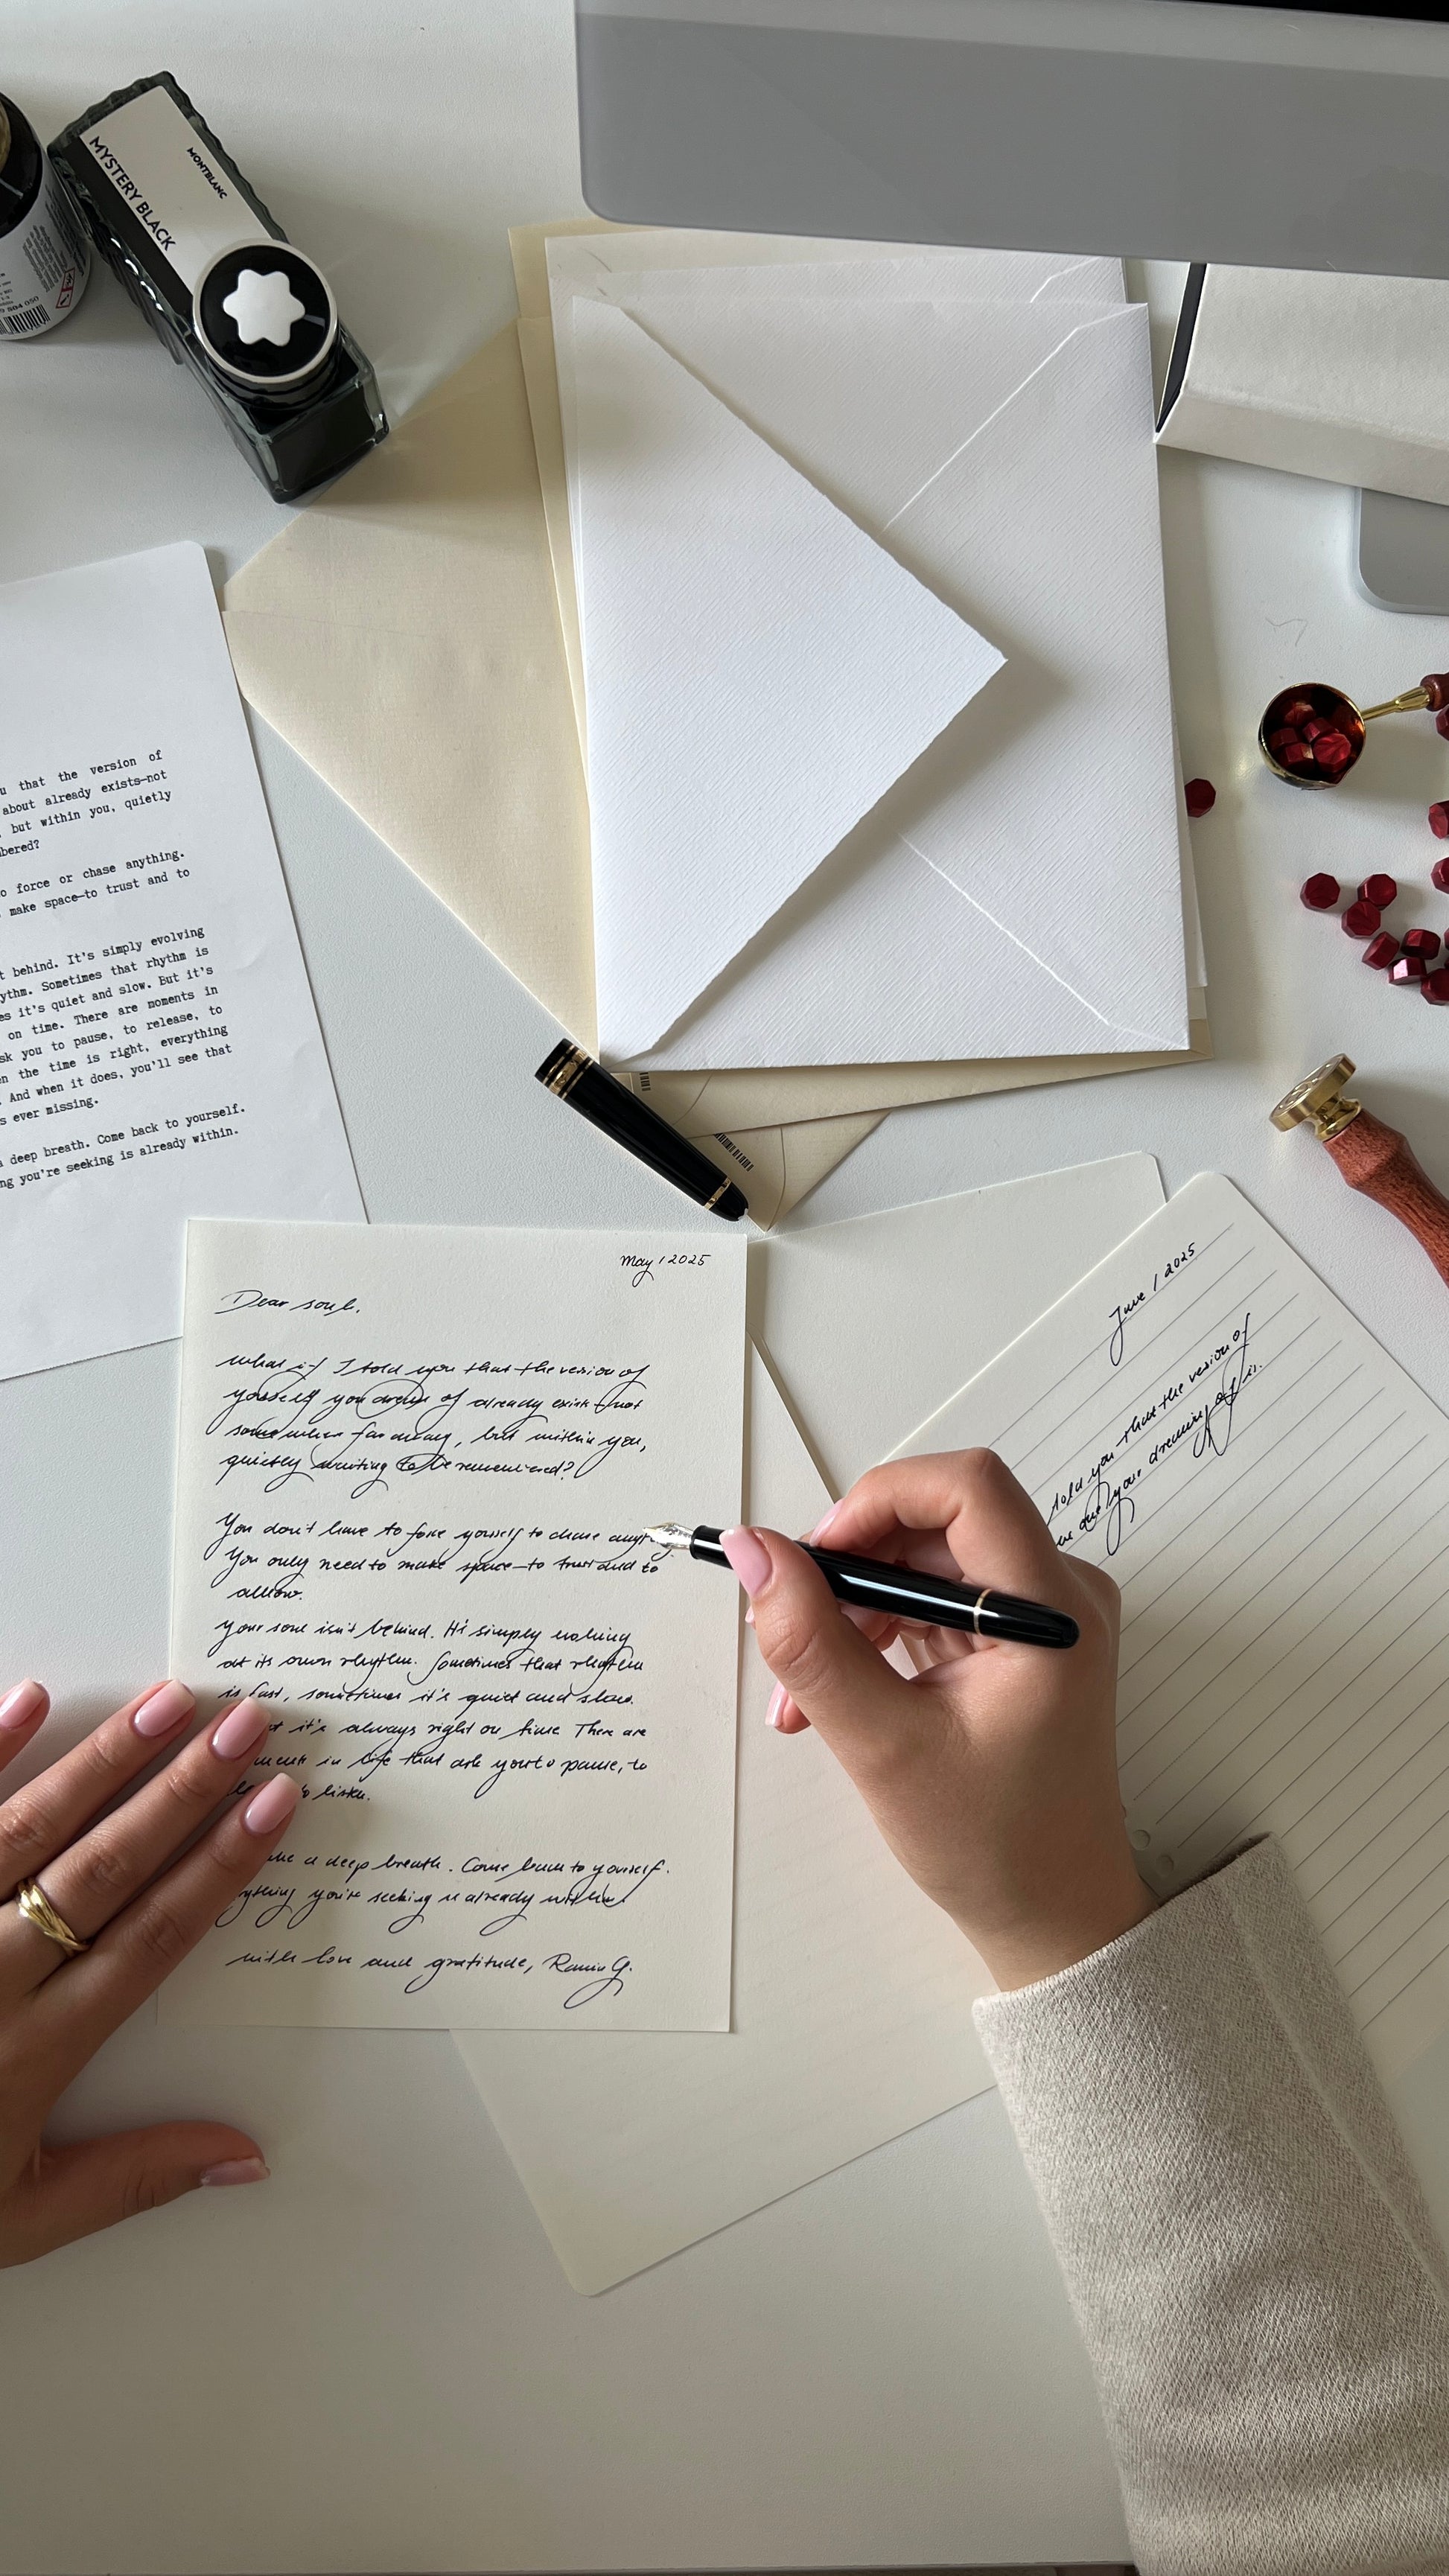 MONTBLANC
MYSTERY BLACK
that the version of
about already exists—not
but within you, quietly
force or chase anything.
make space—to trust and to
behind. It's simply evolving
Sometimes that rhythm is
it's quiet and slow. But it's
on time. There are moments in
you to pause, to release, to
the time is right, everything
And when it does, you'll see that
ever missing.
deep breath. Come back to yourself.
you're seeking is already within.
May / 2025
Dear soul,
What if I told you that the version of
yourself you dream of already exists—not
somewhere far away, but within you,
quietly waiting to be remembered?
You don't have to force yourself to chase
You only need to make space—to trust and to
allow.
Your soul isn't behind. It's simply evolving
at its own rhythm. Sometimes that rhythm
is fast, sometimes it's quiet and slow.
it's always right on time. There are
in life that ask you to pause, to
to listen.
a deep breath. Come back to yourself.
you're seeking is already within
with love and gratitude,
June / 2025
told you that the version of
you dreaming of is.